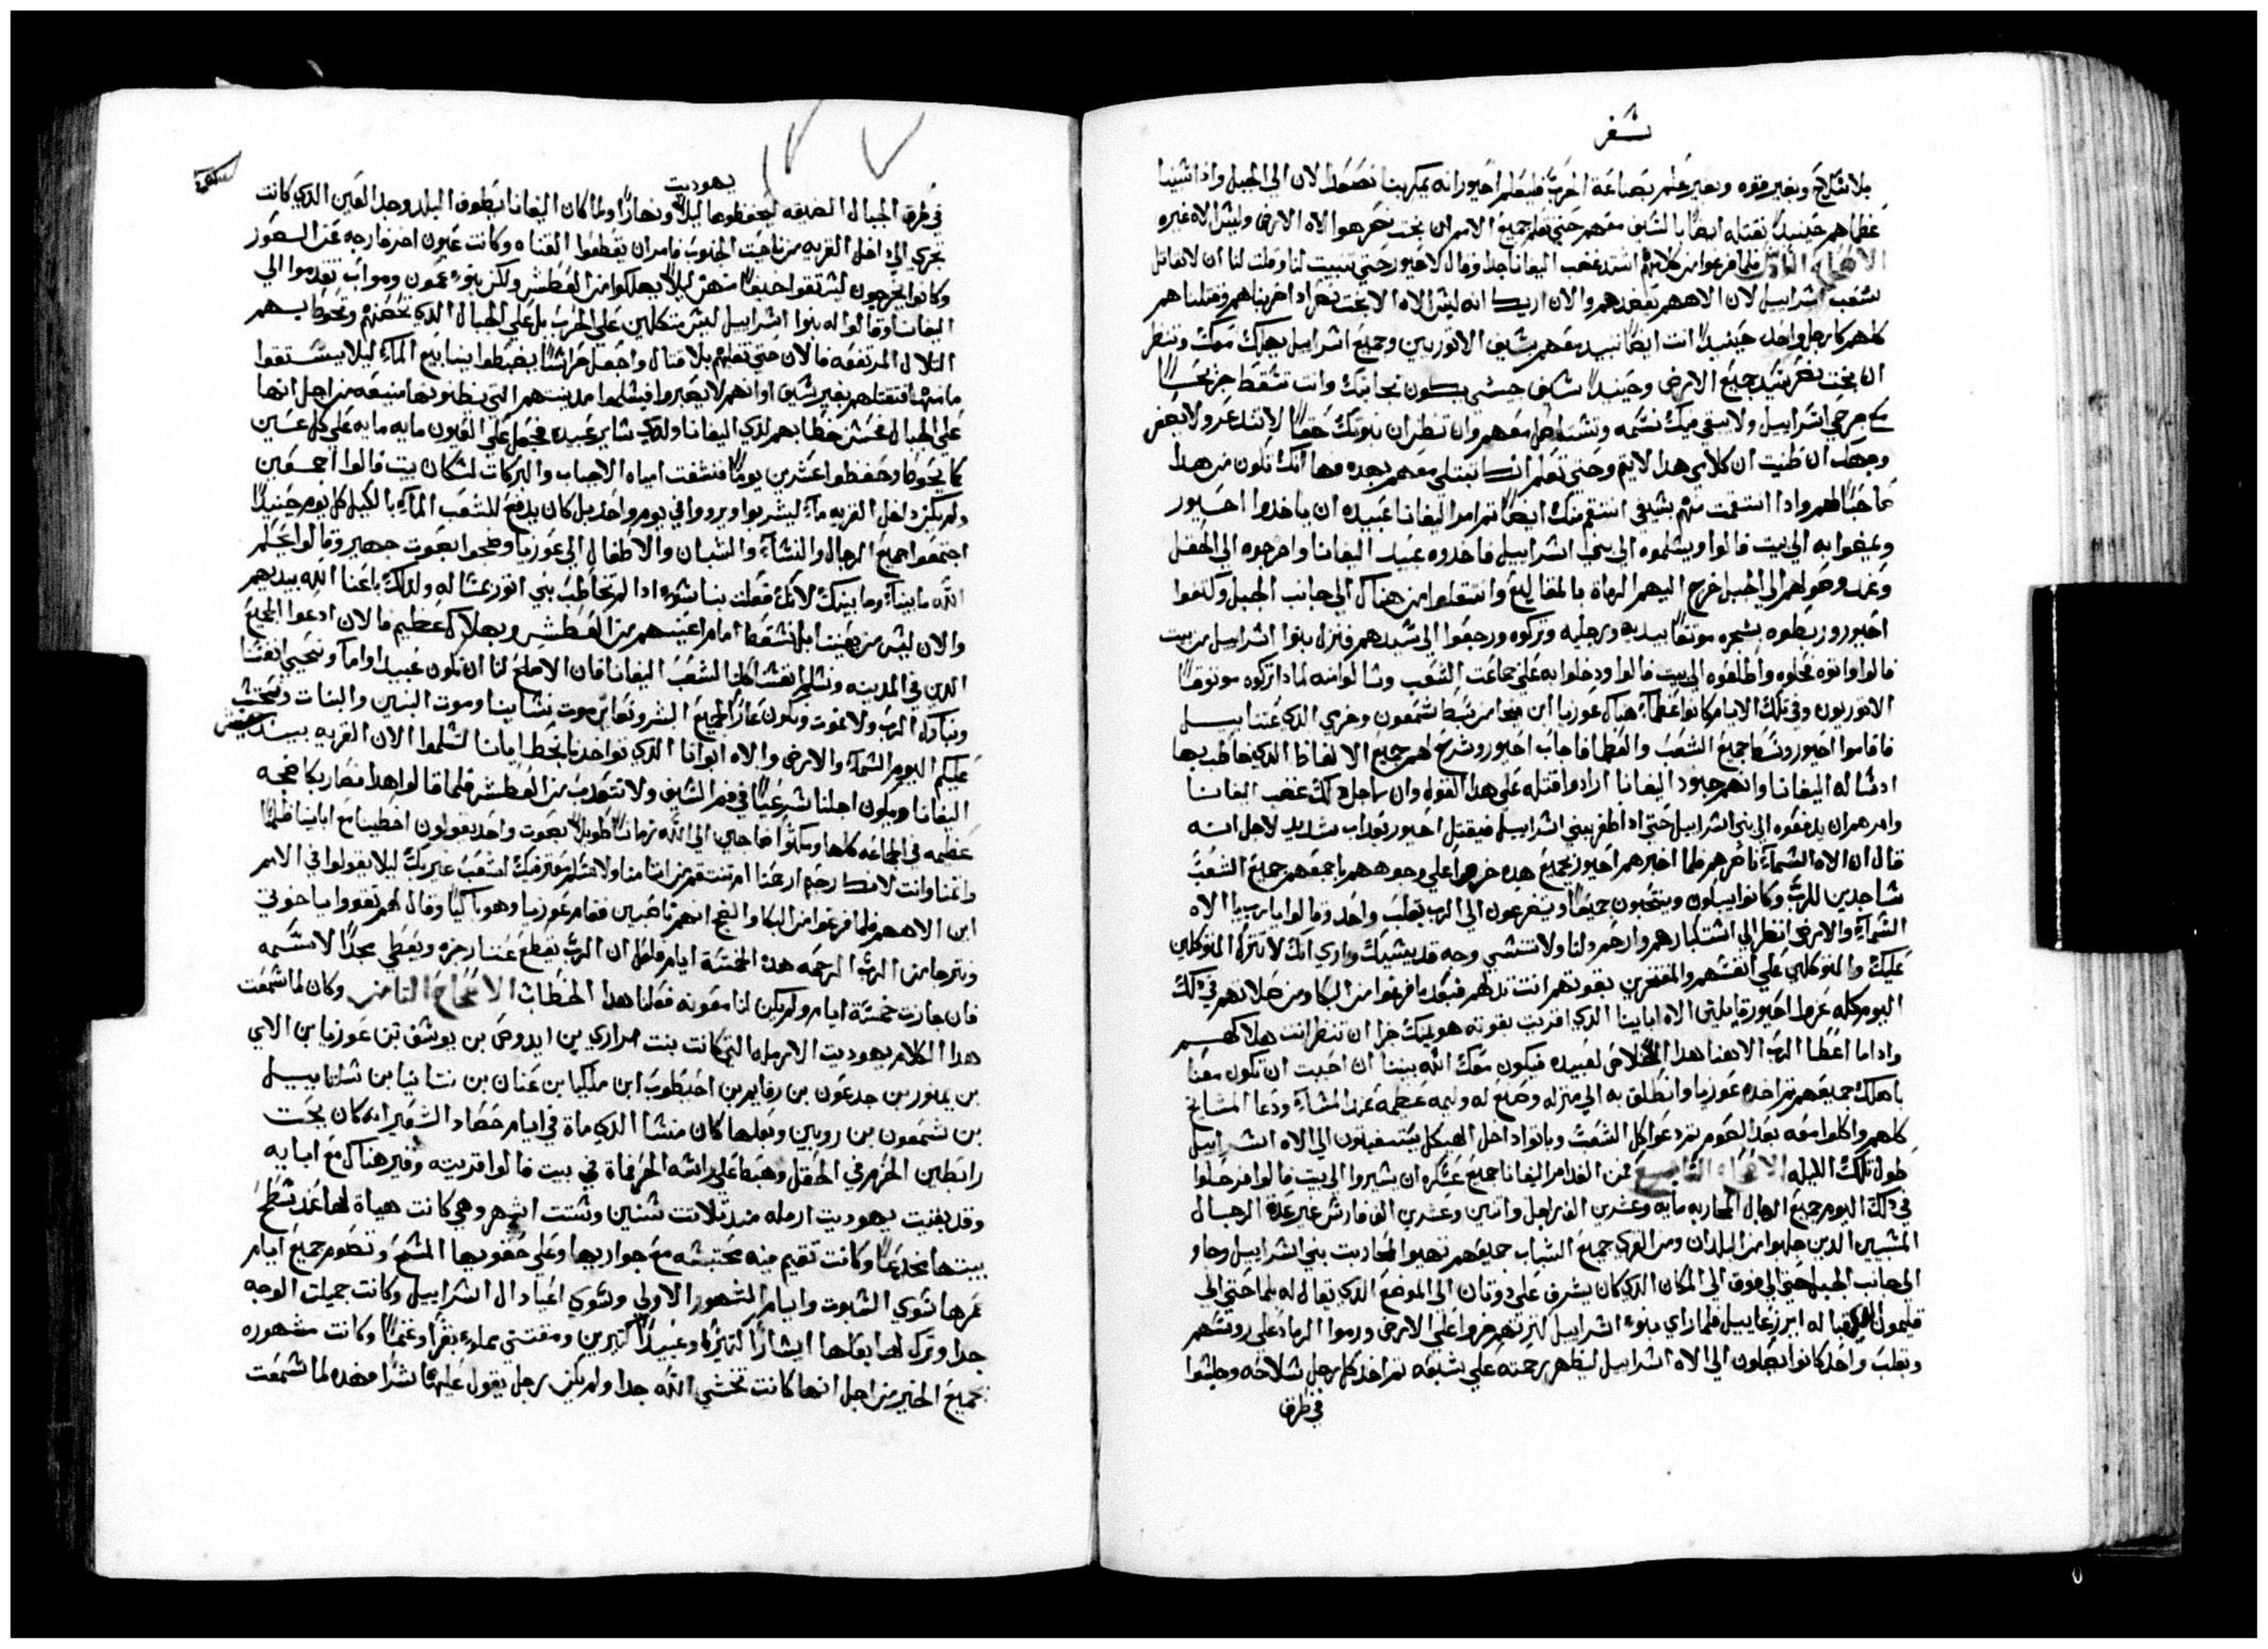 سفر
بلا سلاح وبغير قوه وبغير علم بصناعة الحرب فليعلم احيور انه يمكر بهنا نصعد الان الي الجبل واذا اسبينا
عظماهم حينيدا نقتله ايضا بالسيف معهم حتي تعلم جميع الامم ان بخت نصر هو الاه الارض وليس الاه غيره
فلما فرغوا من كلامهم اشتد غضب اليفانا جدا وقال لاحيور حتي تنبيت لنا وقلت لنا ان لا تقاتل
شعب اسراييل لان الاههم يعضدهم والان اريك انه ليس الاه الا بخت نصر اذا ضربناهم وقتلناهم
كلهم كارجل واحد حينيدا انت ايضا تبيد معهم بسيف الاتوريين وجميع اسراييل يهلك معك وتنظر
ان بخت نصر سيد جميع الارض وحينيدا سيف حسي يكون بجانبك وانت تسقط جريحا
مع جرحي اسراييل ولا يبقي فيك نسمه وتستاصل معهم وان تظن ان نبوتك حقا لا تندعر ولا يصفر
وجهك ان ظنيت ان كلامي هدا لا يتم وحتي تعلم انك تبتلي معهم بهده فها انك تكون من هدا
صاحبا لهم وادا انتقمت منهم بسيفي انتقم منك ايضا ثم امر اليفانا عبيده ان ياخدوا احيور
ويمضوا به الي بيت فالوا ويسلموه الي بني اسراييل فاخدوه عبيد اليفانا واخرجوه الي الحقل
وعند وصولهم الي الجبل خرج اليهم الرماة بالمقاليع وانتقلوا من هناك الي جانب الجبل وكتفوا
احيور وربطوه بشجره موثقا بيديه ورجليه وتركوه ورجعوا الي سيدهم فنزل بنوا اسراييل من بيت
فالوا واتوه فحلوه واطلقوه الي بيت فالوا ودخلوا به علي جماعت الشعب وسالوا منه لمادا تركوه موثوقا
الاتوريون وفي تلك الايام كانوا عظماء هناك عوزيا ابن ميخا من سبط شمعون وخري الدي عتناييل
فاقاموا احيور وسط جميع الشعب والعظما فاجاب احيور وشرح لهم جميع الالفاظ الدي خاطب بها
ادساله اليفانا وانهم جنود اليفانا ارادوا قتله علي هدا القول وان من اجل دلك غضب اليفانا
وامرهم ان يدفعوه الي بني اسراييل حتي ادا ظفر ببني اسراييل فيقتل احيور بعداب شديد لاجل انه
قال ان الاه السماء ناصرهم فلما اخبرهم احيور بجميع هده خروا علي وجوههم باجمعهم جميع الشعب
ساجدين للرب وكانوا يبكون وينتحبون جميعا ويتضرعون الي الرب بقلب واحد وقالوا يا رب يا الاه
السماء والارض انظر الي استكبارهم وارحم دلنا ولا تنسي وجه قديسيك واري انك لا تترك المتوكلين
عليك والمتوكلين علي انفسهم والمفتخرين بقوتهم انت تدلهم فبعد ما فرغوا من البكا ومن صلاتهم في دلك
اليوم كله عزوا احيور قايلين الاه اباينا الدي اخبرت بقوته هو يهبك جزا ان تنظر انت هلاكهم
وادا ما اعطا الرب الاهنا هدا الخلاص لعبيده فيكون معك الله بيننا ان احببت ان تكون معنا
باهلك جميعهم ثم اخده عوزيا وانطلق به الي منزله وصنع له وليمه عظيمه عند المساء ودعا المشايخ
كلهم واكلوا معه بعد الصوم ثم دعوا كل الشعب وباتوا داخل الهيكل يستغيثون الي الاه اسراييل
طول تلك الليله الاصحاح السابع فمن الغد امر اليفانا جميع عسكره ان يسيروا الي بيت فالوا فرحلوا
في دلك اليوم جميع الرجال المحاربه مايه وعشرين الف راجل واتنين وعشرين الف فارس غير عدة الرجال
المسبيين الدين جلبوا من البلدان ومن القري جميع الشباب جميعهم تهيوا لمحاربت بني اسراييل وجاو
الي جانب الجبل حتي الي فوق الي المكان الدي كان يشرف علي دوتان الي الموضع الدي يقال له بلما حتي الي
قليمون الدي قباله ابرزعاييل فلما راي بنوا اسراييل كترتهم خروا علي الارض ورموا الرماد علي روسهم
وبقلب واحد كانوا يصلون الي الاه اسراييل ليظهر رحمته علي شعبه ثم اخد كل رجل سلاحه وجلسوا
في طرق
يهوديت
في طرق الجبال الضيقه ليحفظوها ليلا ونهارا ولما كان اليفانا يطوف البلد وجد العين الدي كانت
تجري الي داخل القريه من ناحيت الجنوب فامر ان يقطعوا القناه وكانت عيون اخر خارجه عن السور
وكانوا يخرجون ليستقوا خفيا منهن ليلا يهلكوا من العطش ولكن بنوا عمون ومواب تقدموا الي
اليفانا وقالوا له بنوا اسراييل ليس متكلين علي الحرب بل علي الجبال الدي تحصنهم وتحوط بهم
التلال المرتفعه فالان حتي تغلبهم بلا قتال واجعل حراسا يضبطوا ينابيع الماء ليلا يستقوا
ما منها فتقتلهم بغير سيف او انهم لا يصبروا فيسلموا مدينتهم التي يظنوها منيعه من اجل انها
علي الجبال فحسن خطابهم لدي اليفانا ولدي ساير عبيده فجعل علي العيون مايه مايه علي كل عين
كما يحوطا وحفظوا عشرين يوما فنشفت امياه الاجباب والبركات لسكان بيت فالوا اجمعين
ولم يكن داخل القريه ماء ليشربوا ويرووا في يوم واحد بل كان يدفع للشعب الماء بالكيل كل يوم حينيدا
اجتمعوا جميع الرجال والنساء والشبان والاطفال الي عوزيا وضجوا بصوت جهير وقالوا يحكم
الله ما بيننا وما بينك لانك فعلت بنا سوء ادا لم تخاطب بني اتور عسا له ولدلك باعنا الله بيديهم
والان ليس من يعيننا بل نسقط امام اعينهم من العطش وبهلاك عظيم فالان ادعوا الجميع
الدين في المدينه ونسلم انفسنا كلنا لشعب اليفانا فان الاصلح لنا ان نكون عبيدا واماء ونحيي انفسنا
ونبارك الرب ولا نموت ونكون عارا لجميع البشر ونعاين موت نساينا وموت البنين والبنات
عليكم اليوم السماء والارض والاه ابواتنا الدي يواخدنا بخطايانا لتسلموا الان القريه بيد
اليفانا ويكون اجلنا سريعا في فم السيف ولا نتعدب من العطش فلما قالوا هدا فصار بكا وضجه
عظيمه في الجماعه كلها ومكثوا صارخين الي الله زمانا طويلا بصوت واحد يقولون اخطينا مع اباينا ظلمنا
واثمنا وانت لانك رحيم ارحمنا ام تنتقم من اثامنا ولا تسلم معترفيك لشعب غير بك ليلا يقولوا في الامم
اين الاههم فلما فرغوا من البكا والضجيج انهم ناصبين فقام عوزيا وهو باكيا وقال لهم تقووا يا خوتي
ونترجا من الرب الرحمه هده الخمسة ايام فلعل ان الرب يقطع عنا رجزه ويعطي مجدا لاسمه
فان جازت خمسة ايام ولم يكن لنا معونه فعلنا هدا الخطاب الاصحاح التامن وكان لما سمعت
هدا الكلام يهوديت الارمله التي كانت بنت مراري بن ايدوص بن يوسف بن عوزيا بن الاي
بن يمنور بن جدعون بن رفايم بن احيطوب ابن ملكيا بن عنان بن نتانيا بن سلتاييل
بن شمعون بن روبين وبعلها كان منسا الدي ماة في ايام حصاد الشعير انه كان يحت
رابطين الحزم في الحقل وهبط علي راسه الحر فماة في بيت فالوا قريته وقبر هناك مع ابايه
وقد بقيت يهوديت ارمله مند تلاتت سنين وستت اشهر وهي كانت هياة لها عند سطح
بيتها مخدعا وكانت تقيم فيه محتبسه مع جواريها وعلي حقويها المسح وتصوم جميع ايام
عمرها سوي السبوت وايام الشهور الاولي وسوي اعياد ال اسراييل وكانت جميلت الوجه
جدا وترك لها بعلها ايسارا كتيره وعبيدا كتيرين ومقتني مملوء بقرا وغنما وكانت مشهوره
بجميع الخير من اجل انها كانت تخشي الله جدا ولم يكن رجل يقول عليها شرا فهده لما سمعت